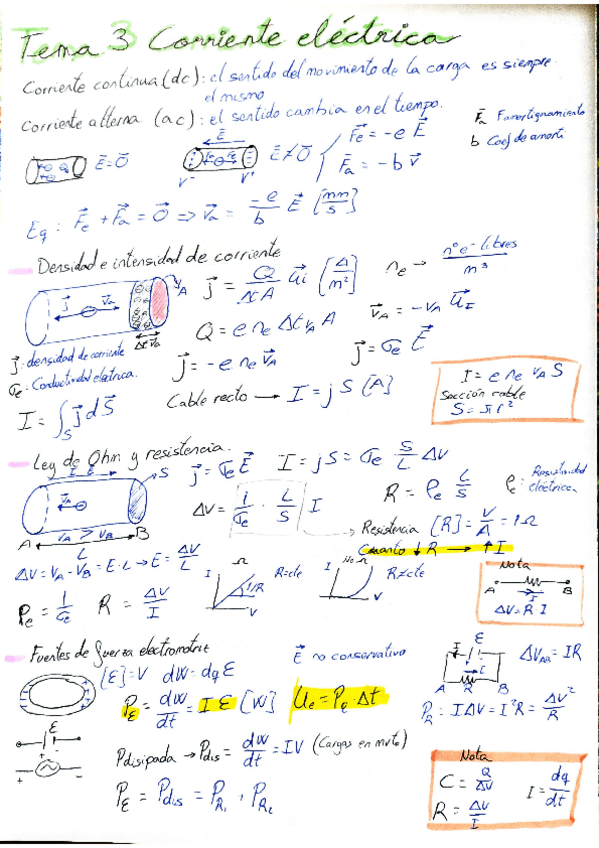 Tema 3 Corriente eléctrica
Corriente continua (dc): el sentido del movimiento de la carga es siempre
el mismo
Corriente alterna (ac): el sentido cambia en el tiempo.
F⃗a Famortiguamiento
b Coef de amorti
E⃗=0⃗
E⃗
E⃗≠0⃗
V⁻ V⁺
F⃗e = -e E⃗
F⃗a = -b v⃗
Eq: F⃗e + F⃗a = 0⃗ ⇒ v⃗a = -e/b E⃗ [mm/s]
Densidad e intensidad de corriente
j⃗ v⃗a A
Δt v⃗a
j⃗ = Q/(Δt A) u⃗i [A/m²]
ne → nº e⁻ libres/m³
Q = e ne Δt va A
v⃗a = -va u⃗I
j⃗ = -e ne v⃗a
j⃗ = σe E⃗
j⃗: densidad de corriente
σe: Conductividad eléctrica.
I = ∫S j⃗ dS⃗
Cable recto → I = j S [A]
I = e ne va S
Sección cable
S = πr²
Ley de Ohm y resistencia.
I E⃗ S
v⃗a
A VA > VB B
L
j⃗ = σe E⃗
I = jS = σe S/L ΔV
ΔV = 1/σe · L/S I
R = ρe L/S
ρe: Resistividad eléctrica
Resistencia [R] = V/A = 1Ω
Cuanto ↓R → ↑I
ΔV = VA - VB = E·L → E = ΔV/L
ρe = 1/σe R = ΔV/I
I Ω R=cte 1/R V
I No Ω R≠cte V
Nota
A B
I
ΔV = R·I
Fuentes de fuerza electromotriz
[ℰ]=V dW = dq ℰ
E⃗ no conservativo
Pℰ = dW/dt = I ℰ [W]
Ue = Pe · Δt
I ℰ
A R B
ΔVAB = IR
PR = IΔV = I²R = ΔV²/R
ℰ
+ -
Pdisipada → Pdis = dW/dt = IV (Cargas en mvto)
Pℰ = Pdis = PR1 + PR2
Nota
C = Q/ΔV
I = dq/dt
R = ΔV/I